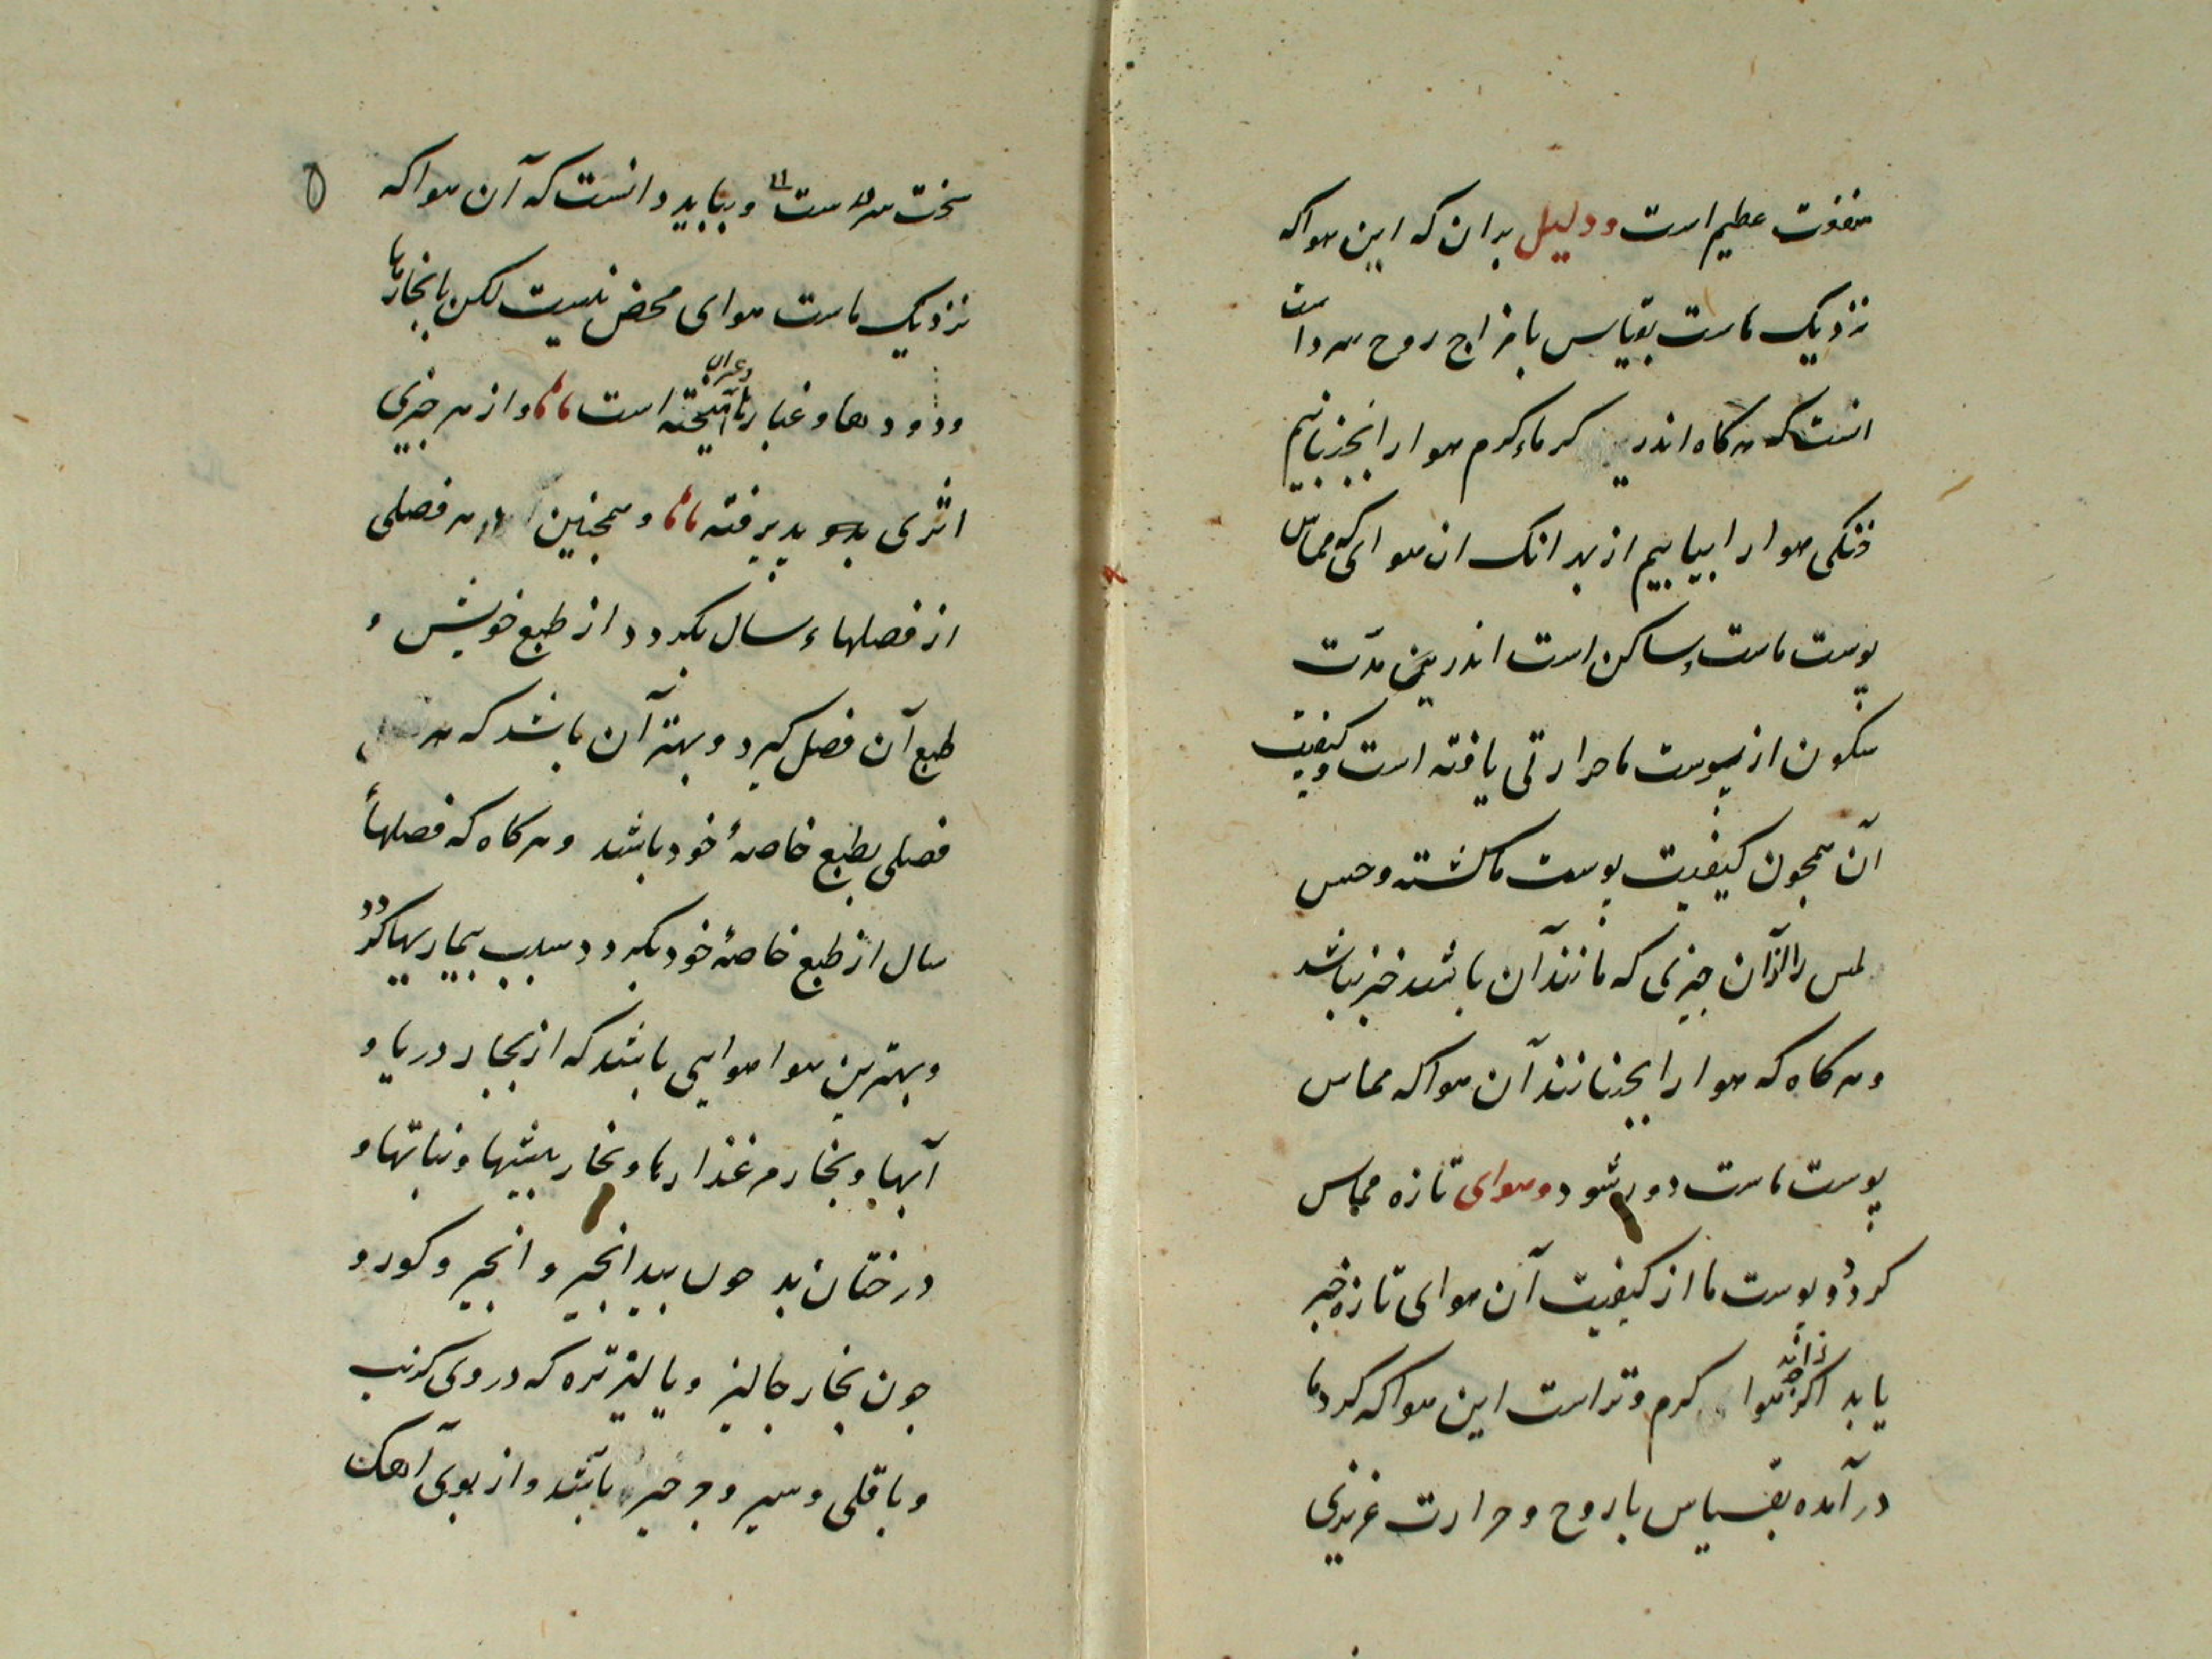 منفعت عظیم است و دلیل بدان که این هوا که
نزدیک ماست بقیاس با مزاج روح سرد است
انست که هرکاه اندر کرماء کرم هوا را بجنبانیم
خنکی هوا را بیابیم از بهر انک ان هوای که مماس
پوست ماست و ساکن است اندرین مدت
سکون از پوست ما حرارتی یافته است و کیفیت
آن همجون کیفیت پوست ما کشته و حس
لمس را از آن جیزی که مانند آن باشد خبر نباشد
و هرکاه که هوا را بجنبانند آن هوا که مماس
پوست ماست دور شود و هوای تازه مماس
کردد و پوست ما از کیفیت آن هوای تازه خبر
یابد اکرجه هوا کرم و تر است این هوا که کرد ما
در آمده بقیاس با روح و حرارت غریزی
سخت سردست و بباید دانست که آن هوا که
نزدیک ماست هوای محض نیست لکن با بخارها
و دودها و غبارها آمیخته است و از هر جیزی
اثری بدو پدیرفته و همجنین هر فصلی
از فصلهاء سال بکردد از طبع خویش و
طبع آن فصل کیرد و بهتر آن باشد که هر
فصلی بطبع خاصهٔ خود باشد و هرکاه که فصلهاء
سال از طبع خاصهٔ خود بکردد سبب بیماریها کردد
و بهترین هوا هوایی باشد که از بخار دریا و
آبها و بخار مرغذارها و بخار بیشها و نباتها و
درختان بد جون بید انجیر و انجیر و کور و
جون بخار جالیز و پالیز تره که در وی کرنب
و باقلی و سیر و جرجیر باشد و از بوی آهک